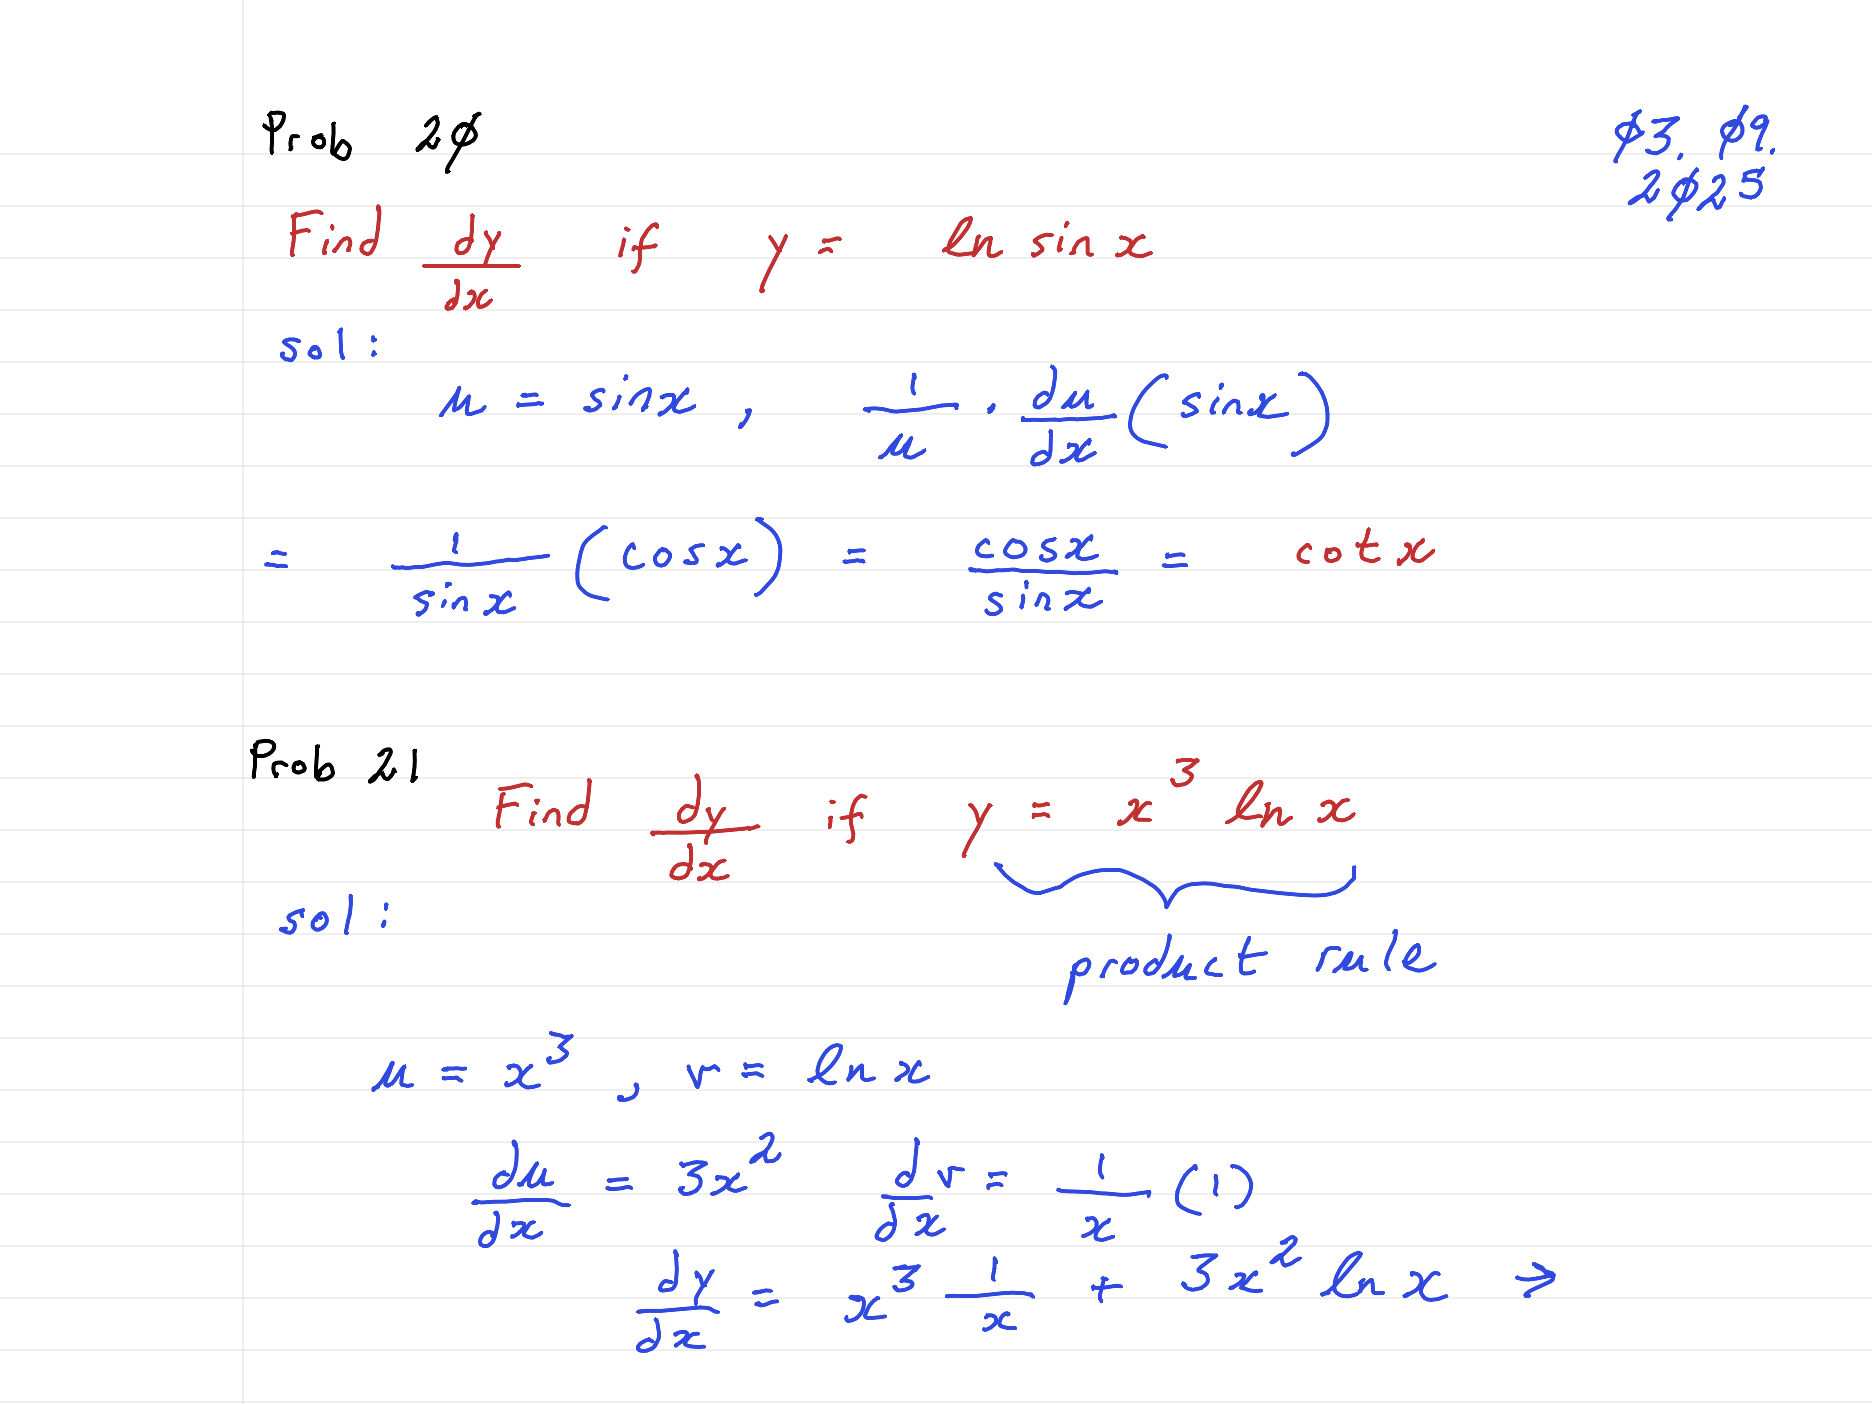 Prob 2∅
∅3. ∅9.
2∅25
Find dy/dx if y = ln sin x
sol:
u = sinx , 1/u · du/dx (sinx)
= 1/sin x (cosx) = cosx/sinx = cot x
Prob 21
Find dy/dx if y = x³ ln x
sol:
product rule
u = x³ , v = ln x
du/dx = 3x² d/dx v = 1/x (1)
dy/dx = x³ 1/x + 3x² ln x →